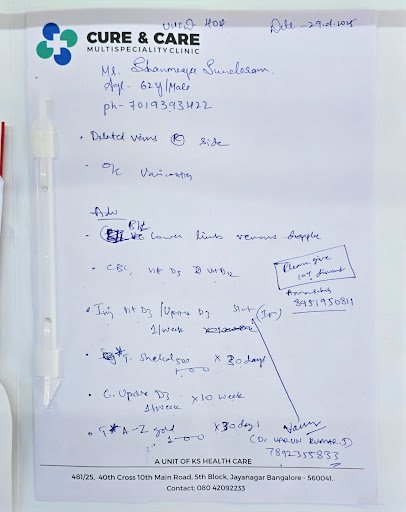 UHID 402
Date - 29.
CURE & CARE
MULTISPECIALITY CLINIC
Mr. Shanmuga Sundaram
Age - 62y/Male
ph - 7019393422
Dilated veins R side
O/E Varicosities
Adv
B/L Lower limb venous doppler
CBC, Vit D3 Vit B12
Please give
10% discount
8951950811
Inj Vit D3 / Uprise D3 Stat (Im)
1/week
* T. Shelcal 500 x 30 days
1-0-0
C. Uprise D3 x 10 week
1/week
T* A-Z gold x 30 days
1-0-0
(Dr. VARUN KUMAR.J)
7892355833
A UNIT OF KS HEALTH CARE
481/25, 40th Cross 10th Main Road, 5th Block, Jayanagar Bangalore - 560041.
Contact: 080 42092233